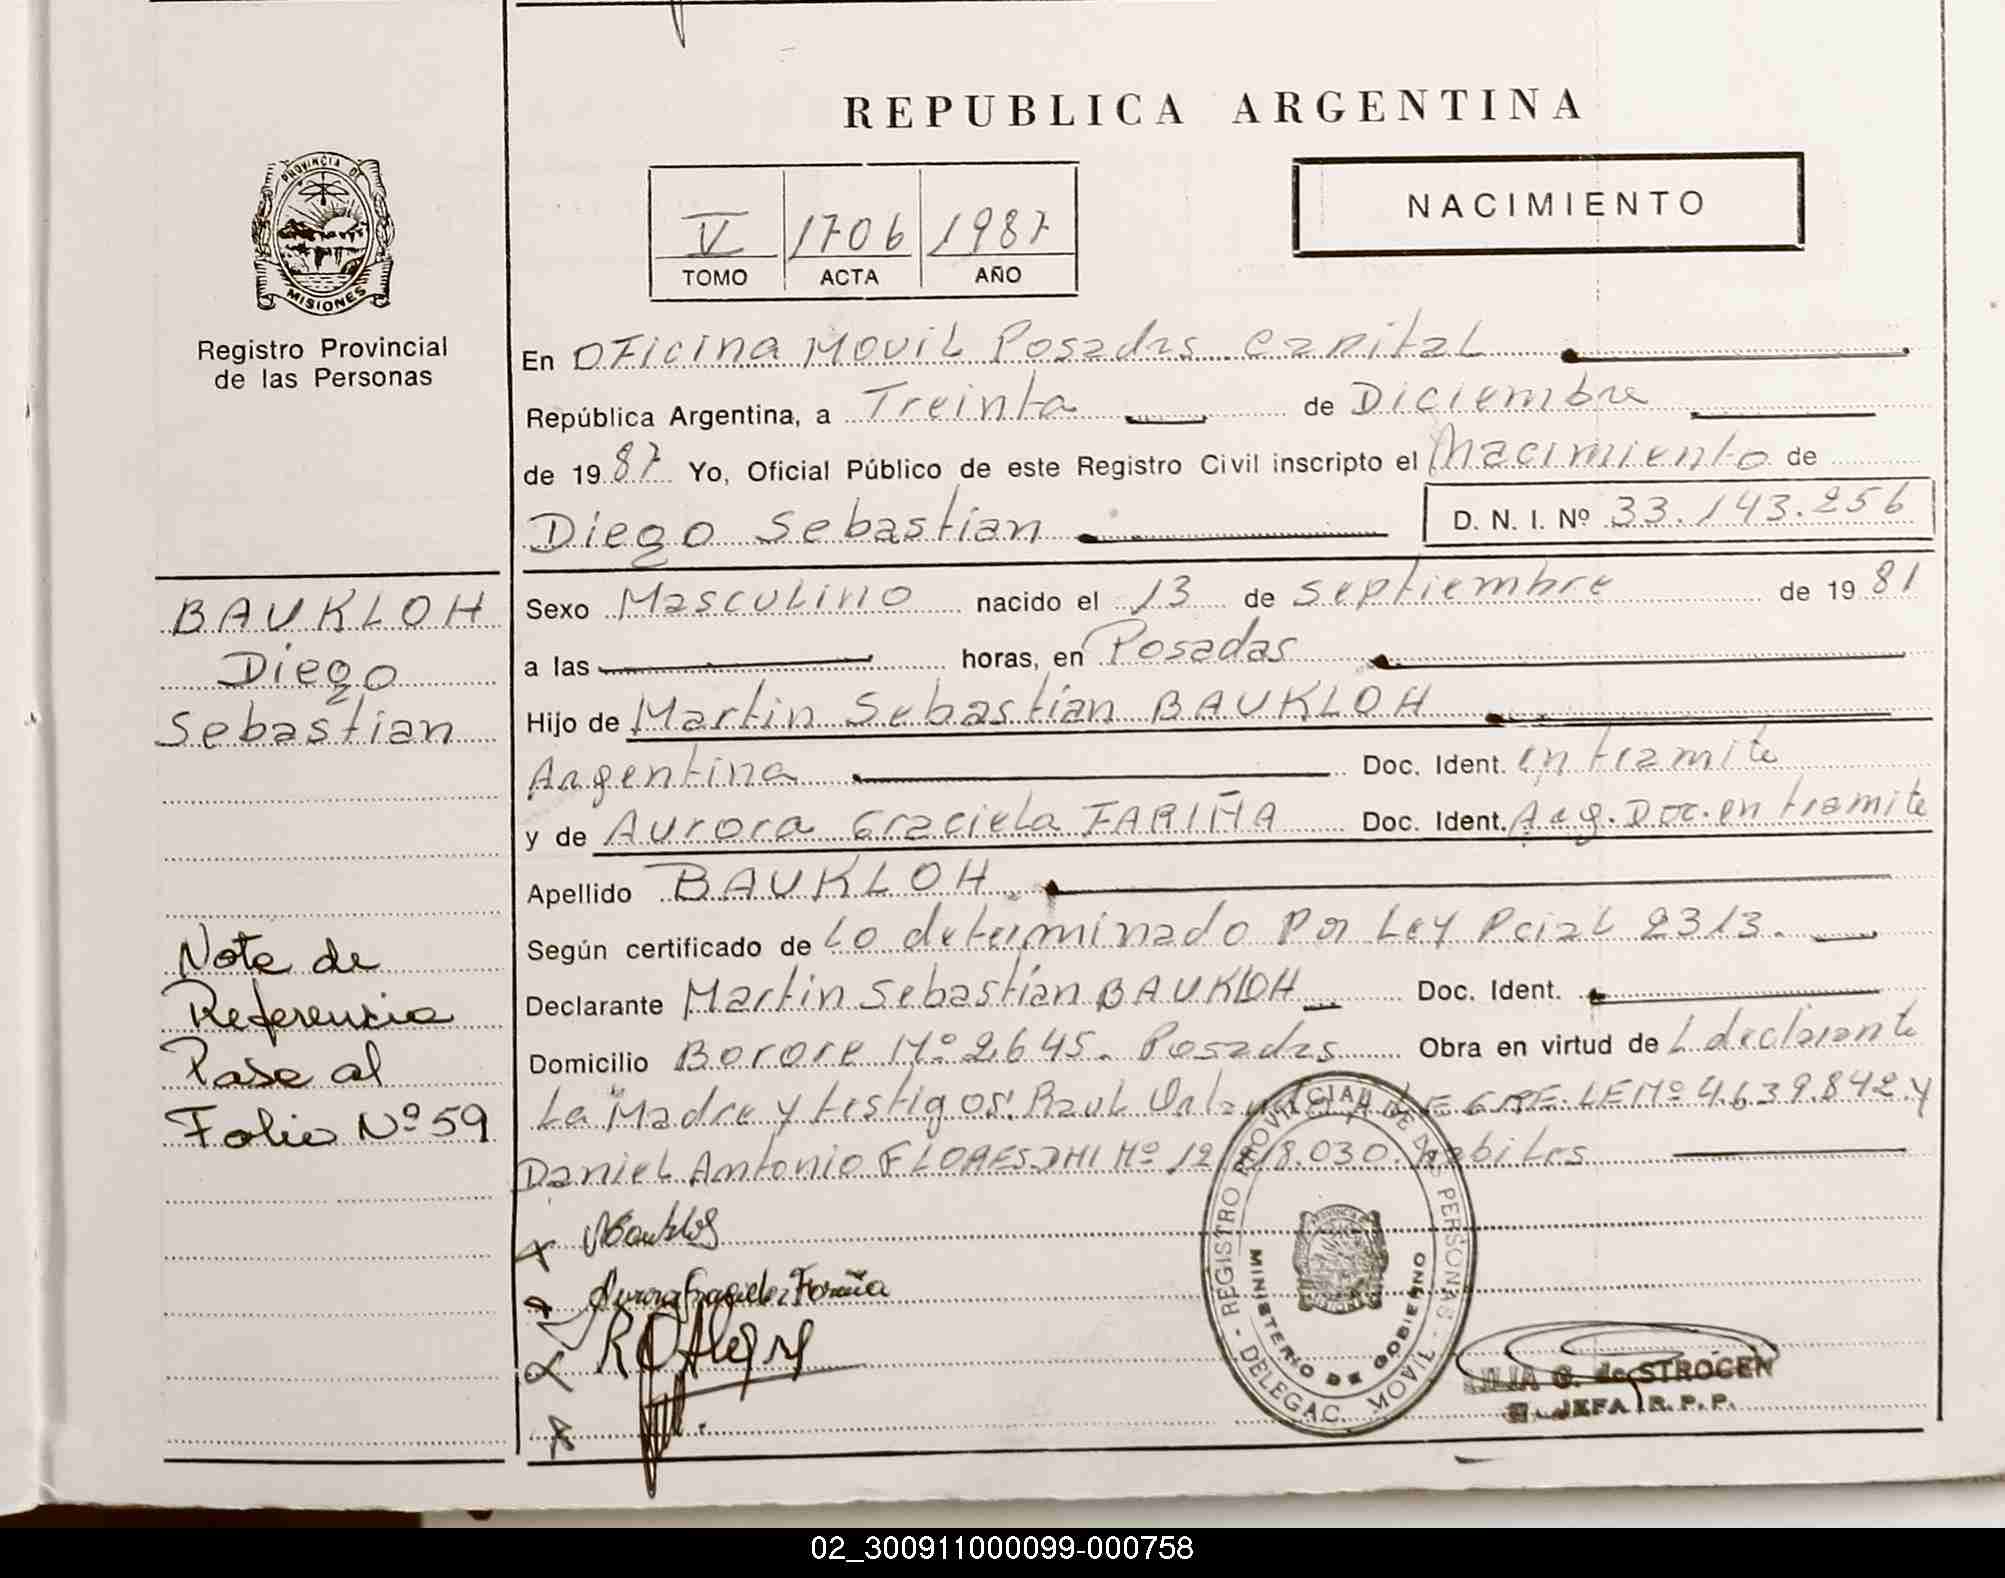 REPUBLICA ARGENTINA
NACIMIENTO
V 1706 1987
TOMO ACTA AÑO
PROVINCIA DE
MISIONES
Registro Provincial
de las Personas
En OFicina Movil Posadas Capital
República Argentina, a Treinta de Diciembre
de 1987 Yo, Oficial Público de este Registro Civil inscripto el Nacimiento de
Diego Sebastian D. N. I. Nº 33.143.256
BAUKLOH
Diego
Sebastian
Sexo Masculino nacido el 13 de septiembre de 1981
a las horas, en Posadas
Hijo de Martin Sebastian BAUKLOH
Argentina Doc. Ident. en tramite
y de Aurora Graciela FARIÑA Doc. Ident. Arg. Doc. en tramite
Apellido BAUKLOH
Según certificado de Lo determinado Por Ley Pcial 2313.
Declarante Martin Sebastian BAUKLOH Doc. Ident.
Domicilio Borore Nº 2645. Posadas Obra en virtud de L declarante
La Madre y testigos: Raul ALEGRE LE Nº 4.639.842 y
Daniel Antonio FLORES DNI Nº 12. 8.030. habiles
Nota de
Referencia
Pase al
Folio Nº 59
Aurora Graciela Fariña
R O Alegre
REGISTRO PROVINCIAL DE LAS PERSONAS
MINISTERIO DE GOBIERNO
DELEGAC. MOVIL
LILIA G. de STROCEN
JEFA R. P. P.
02_300911000099-000758